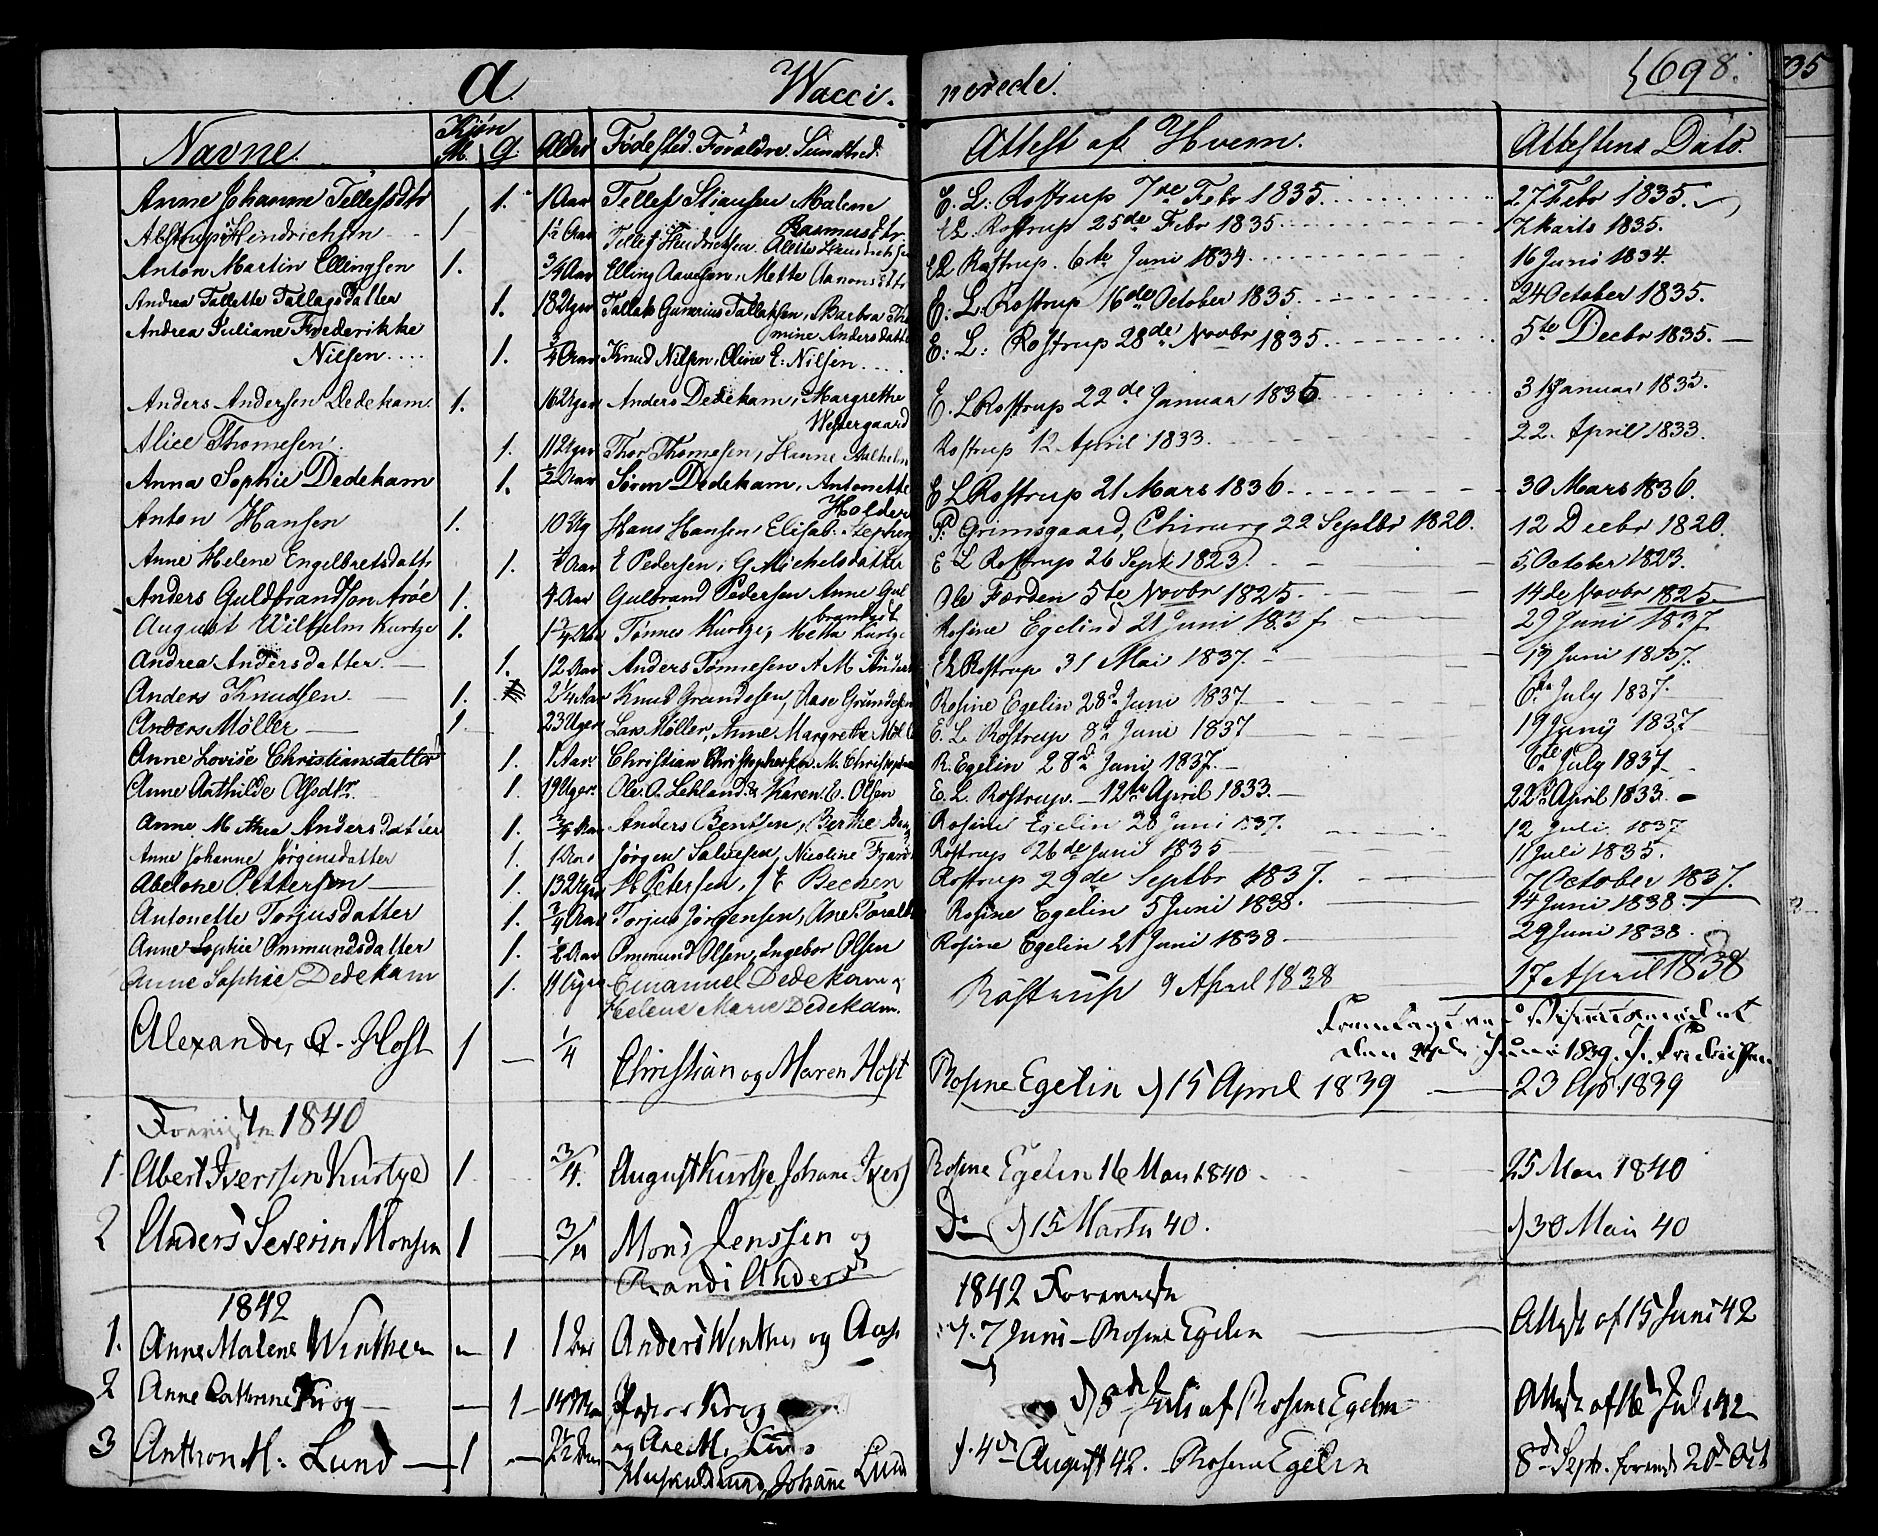 a. Wacci. nerede. 698. 35
Navne. Kjøn M. Q. Alder Fødested. Forældre. Sundhed. Attest af Hvem. Attestens Dato.
Anne Johanne Tellefsdtr 1. 1 Aar Tellef Malene E. L. Rostrup 7de Febr 1835. 27 Febr 1835.
Rasmusdtr
Hendrichsen 1 1½ Aar Tellef Hendrichsen. EL. Rostrup 25de Febr 1835. 17 Marts 1835.
Anton Martin Ellingsen 1. ¾ Aar Elling Aanesen, Mette Aanonsdtr EL Rostrup. 6te Juni 1834. 16 Juni 1834.
Andrea Tallette Tallagsdatter 1. 18 Uger Tallak Gunerius Tallaksen, Barbra E: L: Rostrup 16de October 1835. 24 October 1835.
Andrea Juliane Frederikke mine Andersdatte 5te Decbr 1835.
Nilsen 1. ¾ Aar Knud Nilsen, Oline E: Nilsen E: L: Rostrup 28de Novbr 1835.
Anders Andersen Dedekam. 1. 16 Uger Anders Dedekam, Margrethe E. L Rostrup 22de Januar 1836 31 Januar 1835.
Westergaard
Alice Thomesen. 1. 11 Uger Thor Thomesen, Hanne Rostrup 12 April 1833. 22. April 1833.
Anna Sophie Dedekam 1. ½ Aar Søren Dedekam, Antonette E L Rostrup 21 Mars 1836. 30 Mars 1836.
Holder
Anton Hansen 1. 10 Ug Hans Hansen Elisab: P. Grimsgaard, Chirurg 22 Septbr 1820. 12 Decbr 1820.
Anne Helene Engelbretsdatter 1. Aar E Pedersen, G Michelsdatter E L Rostrup 26 Sept 1823. 5 October 1823.
Anders Guldbrandsen 1. 4 Aar Gulbrand Pedersen Anne Gul Ole Færden 5te Novbr 1825. 14de Novbr 1825.
August Wilhelm Kurtze 1. 1¾ Aar Tønnes Kurtze, Rosine Egelind 21 Juni 1837 29 Juni 1837
Andrea Andersdatter. 1. 12 Aar Anders Tønnesen A M Anders EL Rostrup 31 Mai 1837. 19 Juni 1837.
Anders Knudsen. 1. 2¼ Aar Knud Grundesen, Aase Grundesen Rosine Egelin 28d Juni 1837 6te July 1837.
Anders Møller 1 23 Uger Lars Møller, Anne Margrethe Møl E. L. Rostrup 8d Juni 1837 19 Juny 1837
Anne Lovise Christiansdatter 1. 1 Aar. Christian Christophersen. M. Christoph R. Egelin 28d Juni 1837. 6te July 1837
Anne Mathilde Olsdtr. 1. 19 Uger. Ole. A. Lekland. & Karen. E. Olsen E. L. Rostrup. 12te April 1833. 22d April 1833.
Anne Mathea Andersdatter 1. ¾ Aar Anders Bentsen, Berthe Rosine Egelin 28 Juni 1837. 12 Juli 1837
Anne Johanne Jørginsdatter 1. Jørgen Salvesen, Nicoline Rostrup 26de Juni 1835 11 Juli 1835.
Abelone Pettersen 1. 13 Uger Petersen, Bechen Rostrup 29de Septbr 1837. 7 October 1837.
Antonette Torjusdatter 1. ¾ Aar Torjus Jørgensen, Ane Rosine Egelin 5 Juni 1838. 14 Juni 1838.
Anne Sophie Ommundsdatter 1. ½ Aar Ommund Olsen, Ingebor Olsen Rosine Egelin 21 Juni 1838 29 Juni 1838.
Anne Sophie Dedekam 1. 11 Ugr Emanuel Dedekam og Rostrup 9 April 1838 17 April 1838
Helene Marie Dedekam.
Alexander Host 1 ¼ Christian og Maren Host Rosine Egelin d 15 April 1839 23 Apr. 1839
Fremlagt ved Visitationen
den Juni 1839.
1840
1 Abert Iversen Kurtze 1 ¾. August Kurtze Johane Rosine Egelin 16 Mai 1840. 25 Mai 1840
2 Anders Severin Monsen 1 ¾ Mons Jenssen og Do d 15 Martii 40. d 30 Mai 40
Randi Anders
1842 1842 Foreviste
1. Anne Malene Winther 1 Anders Winther og 7 Juni Rosine Egelin Attest af 15 Juni 42
2 Anne Catterine Krog 1 Peder Krog d 8de Juli af Rosine Egelin Attest af 16d Juli 42
3 Anthron M. Lund 1 2½ 4de August 42. Rosine Egelin 8de Sept.
og Ane M.
Lund, Johane Lund